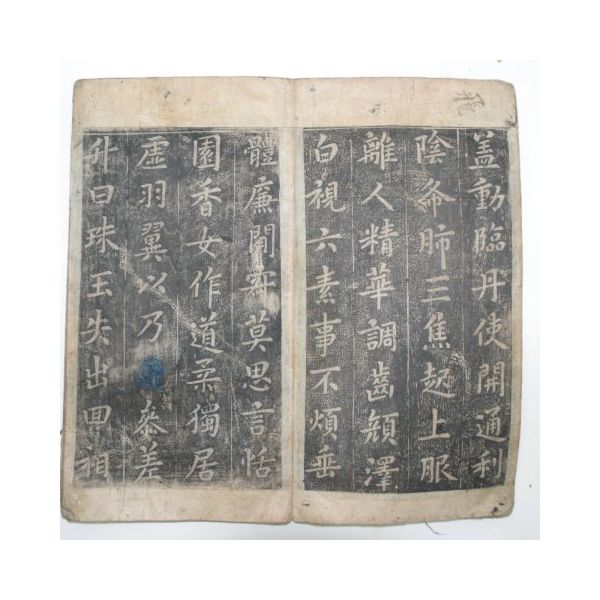 盖動臨丹使開通利
陰命肺三焦起上服
離人精華調齒顏澤
白視六素事不煩垂
體廉閒寂莫思言恬
園香女作道柔獨居
虛羽翼以乃 參差
升日珠玉失出回相